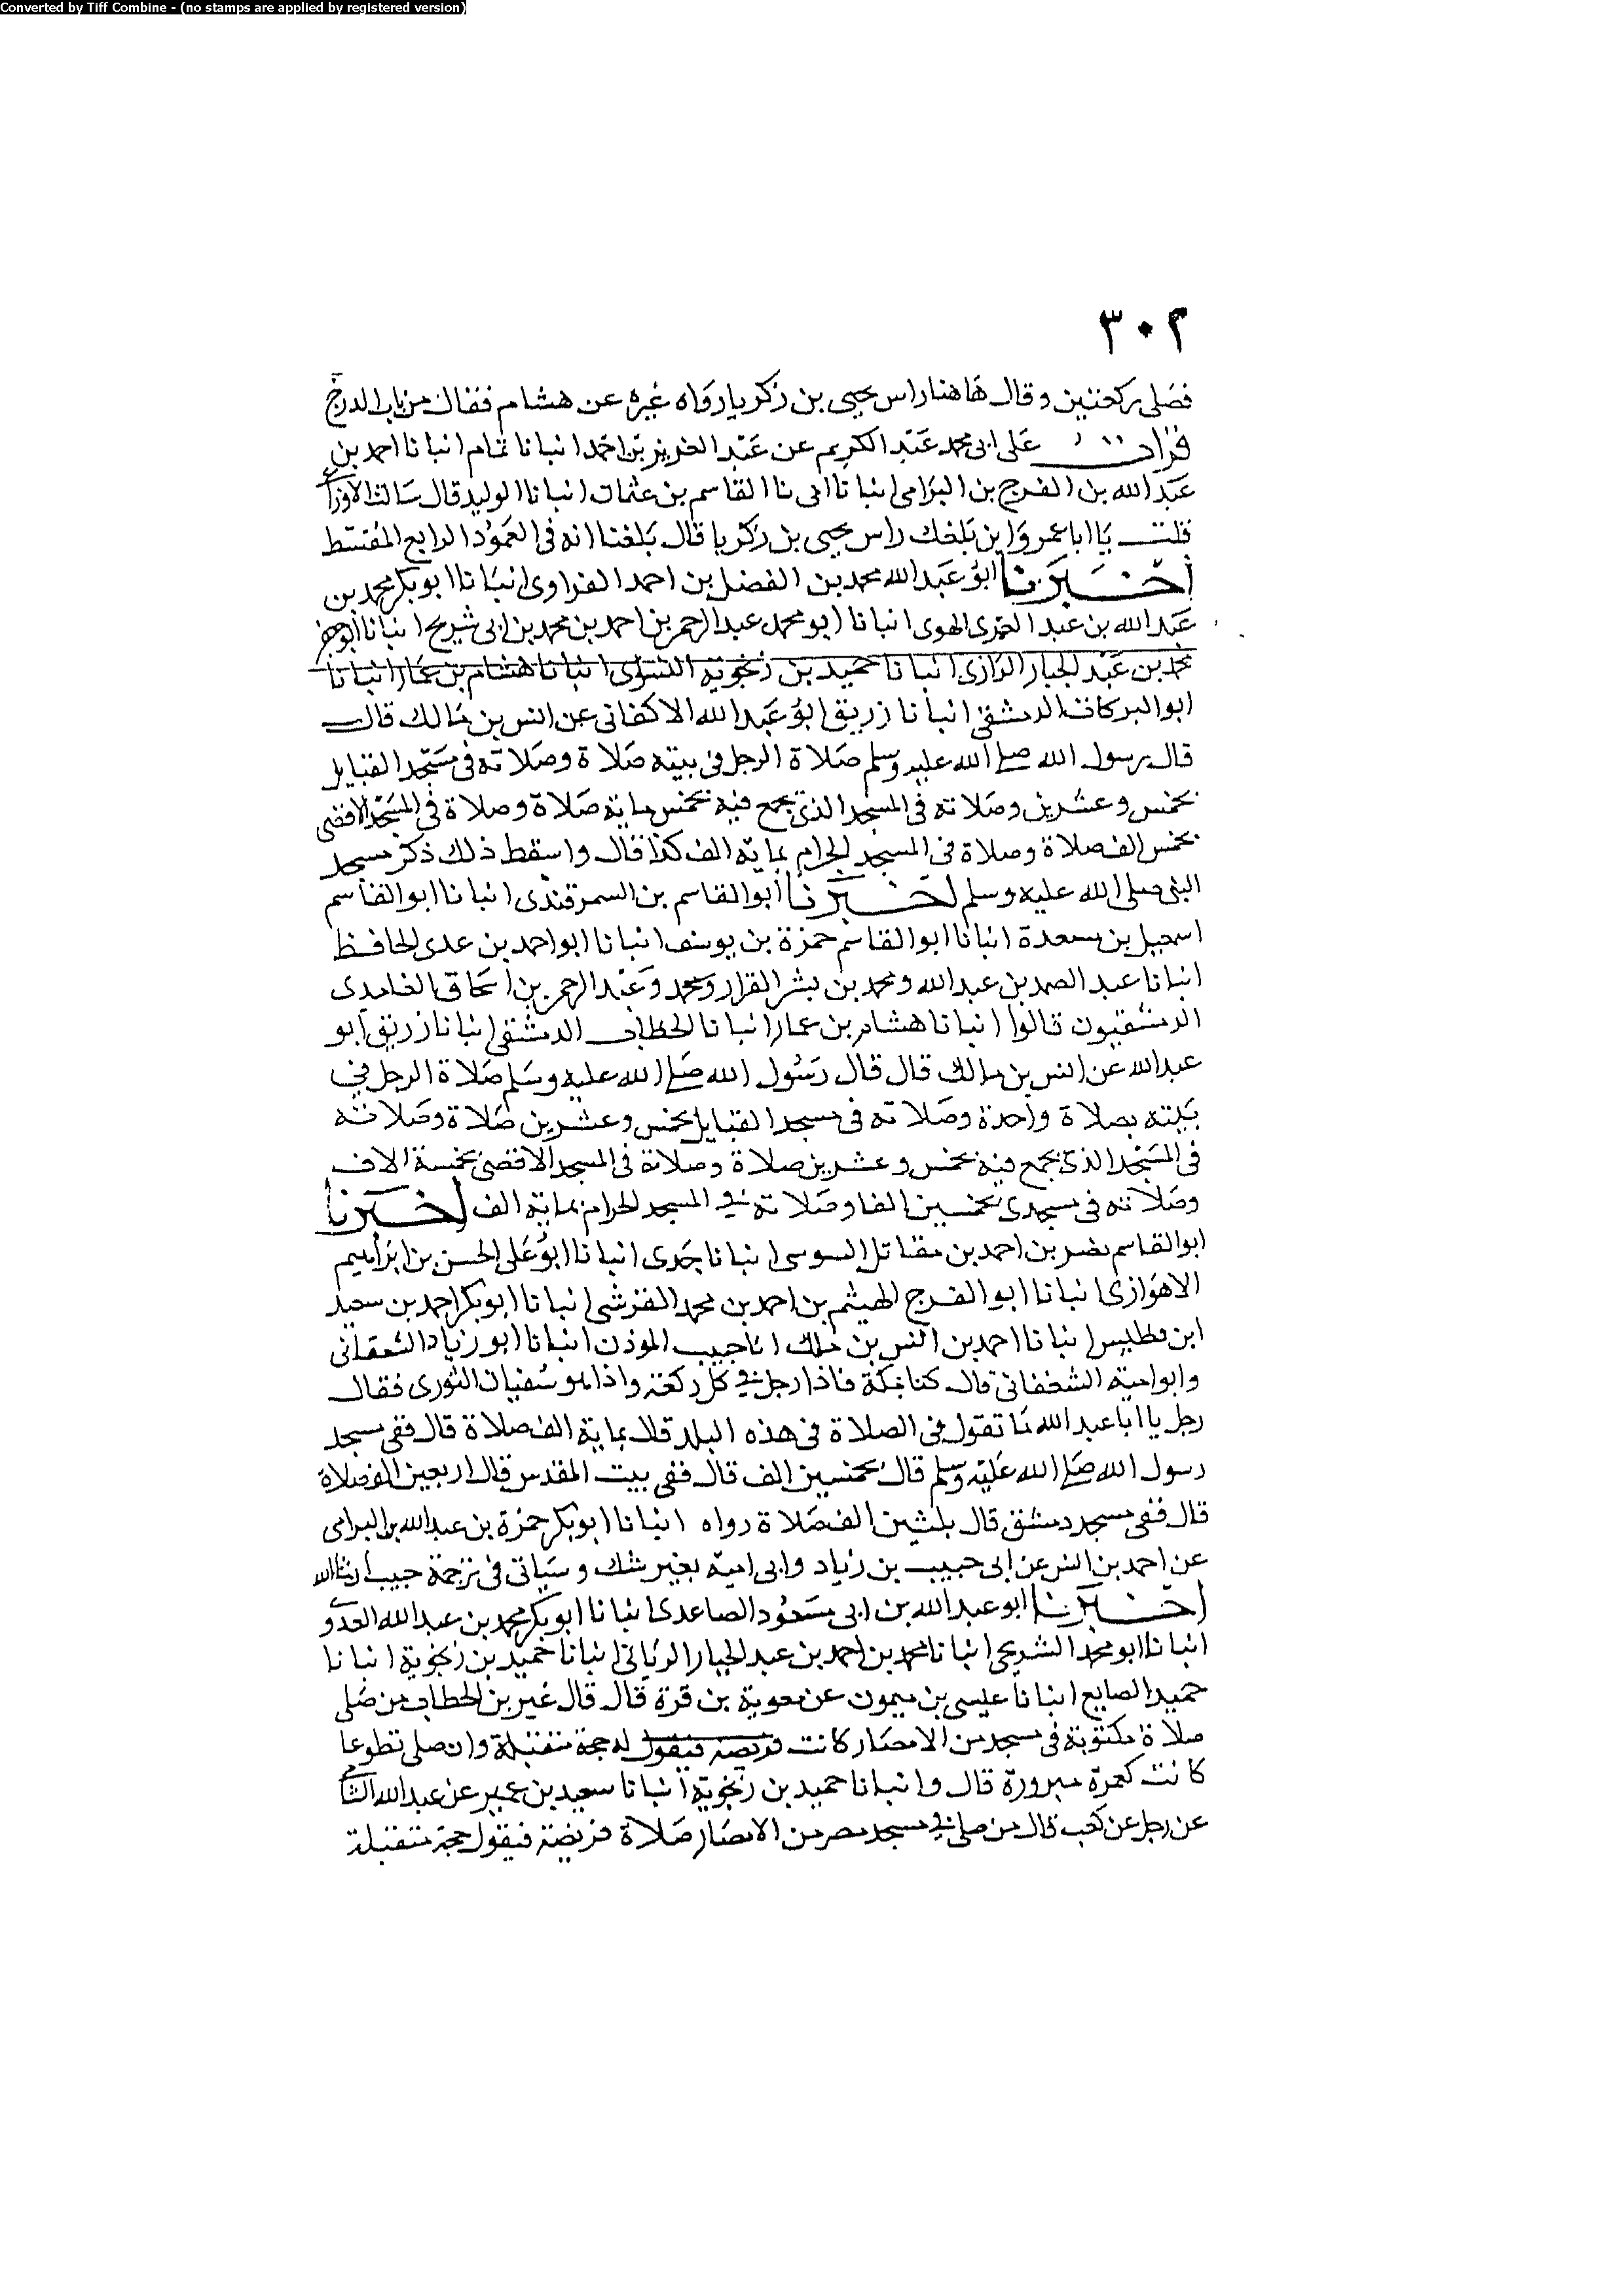 Converted by Tiff Combine - (no stamps are applied by registered version)
٣٠٢
فصلى ركعتين وقال هاهنا راس يحيى بن زكريا رواه غيره عن هشام فقال من باب الدرج
قرات على ابى محمد عبد الكريم عن عبد العزيز بن احمد انبانا تمام انبانا احمد بن
عبد الله بن الفرج بن البرامى انبانا ابى نا القاسم بن عثمان انبانا الوليد قال سالت الاوزاعى
قلت يا ابا عمرو اين بلغك راس يحيى بن زكريا قال بلغنا انه فى العمود الرابع المقسط
اخبرنا ابو عبد الله محمد بن الفضل بن احمد الفراوى انبانا ابو بكر محمد بن
عبد الله بن عبد العمرى الهوى انبانا ابو محمد عبد الرحمن بن احمد بن محمد بن ابى شريح انبانا ابو جعفر
محمد بن عبد الجبار الرازى انبانا حميد بن زنجوية النسوى انبانا هشام بن عمار انبانا
ابو البركات الدمشقى انبانا زريق ابو عبد الله الاكفانى عن انس بن مالك قال
قال رسول الله صلى الله عليه وسلم صلاة الرجل فى بيته صلاة وصلاته فى مسجد القبايل
بخمس وعشرين وصلاته فى المسجد الذى يجمع فيه بخمس ماية صلاة وصلاة فى المسجد الاقصى
بخمس الف صلاة وصلاة فى المسجد الحرام بماية الف كذا قال واسقط ذلك ذكر مسجد
النبى صلى الله عليه وسلم اخبرنا ابو القاسم بن السمرقندى انبانا ابو القاسم
اسمعيل بن مسعدة انبانا ابو القاسم حمزة بن يوسف انبانا ابو احمد بن عدى الحافظ
انبانا عبد الصمد بن عبد الله ومحمد بن بشر القزاز ومحمد وعبد الرحمن بن اسحاق الغامدى
الدمشقيون قالوا انبانا هشام بن عمار انبانا الخطاب الدمشقى انبانا زريق ابو
عبد الله عن انس بن مالك قال قال رسول الله صلى الله عليه وسلم صلاة الرجل فى
بيته بصلاة واحدة وصلاته فى مسجد القبايل بخمس وعشرين صلاة وصلاته
فى المسجد الذى يجمع فيه بخمس وعشرين صلاة وصلاة فى المسجد الاقصى بخمسة الاف
وصلاته فى مسجدى بخمسين الفا وصلاته فى المسجد الحرام بماية الف اخبرنا
ابو القاسم نصر بن احمد بن مقاتل السوسى انبانا جدى انبانا ابو على الحسن بن ابراهيم
الاهوازى انبانا ابو الفرج الهيثم بن احمد بن محمد القرشى انبانا ابو بكر احمد بن سعيد
ابن فطيس انبانا احمد بن انس بن ملك انا حبيب الموذن انبانا ابو زياد الشعفانى
وابو امية الشعفانى قال كنا بمكة فاذا رجل فى كل ركعة واذا هو سفيان الثورى فقال
رجل يا ابا عبد الله ما تقول فى الصلاة فى هذه البلد قال بماية الف صلاة قال ففى مسجد
رسول الله صلى الله عليه وسلم قال بخمسين الف قال ففى بيت المقدس قال اربعين الف صلاة
قال ففى مسجد دمشق قال بثلثين الف صلاة رواه انبانا ابو بكر حمزة بن عبد الله بن البرامى
عن احمد بن انس عن ابى حبيب بن زياد وابى امية بغير شك وسياتى فى ترجمة حبيب ان شا الله
اخبرنا ابو عبد الله بن ابى مسعود الصاعدى انبانا ابو بكر محمد بن عبد الله العدوى
انبانا ابو محمد الشريحى انبانا محمد بن احمد بن عبد الجبار الريانى انبانا حميد بن زنجوية انبانا
حميد الصايع انبانا عيسى بن ميمون عن معوية بن قرة قال قال عمر بن الخطاب من صلى
صلاة مكتوبة فى مسجد من الامصار كانت فريضة فيقول له حجة متقبلة وان صلى تطوعا
كانت كعمرة مبرورة قال وانبانا حميد بن زنجوية انبانا سعيد بن عمير عن عبد الله الشامى
عن رجل عن كعب قال من صلى فى مسجد مصر من الامصار صلاة فريضة فيقول حجة متقبلة